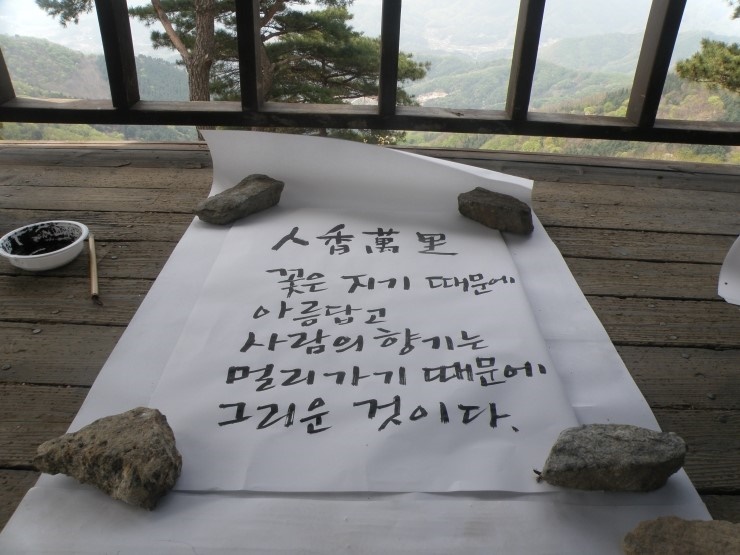 人香萬里
꽃은 지기 때문에
아름답고
사람의 향기는
멀리가기 때문에
그리운 것이다.